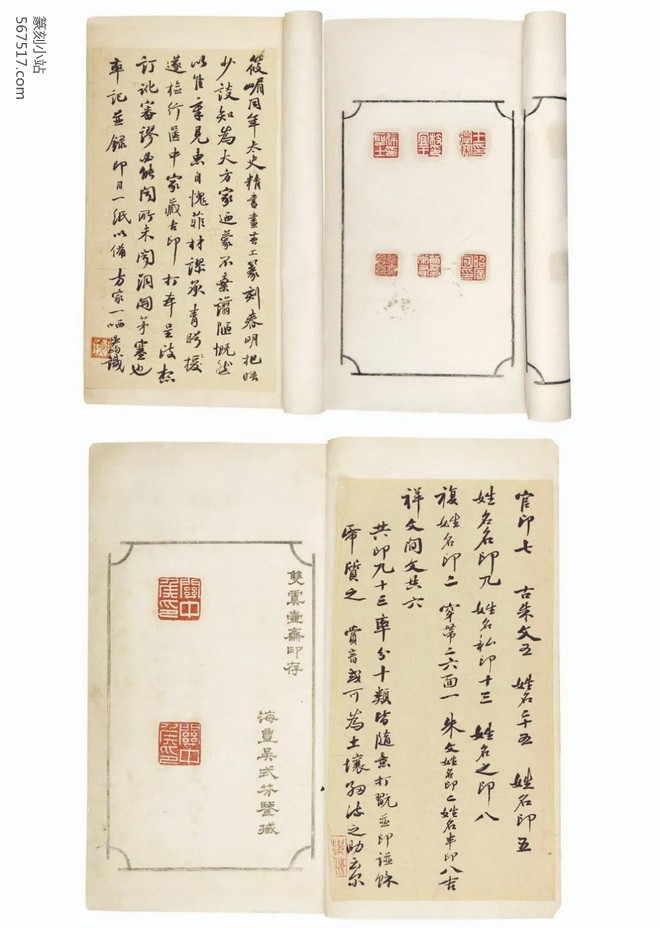 篆刻小站
567517.com
筱嵋同年太史精書畫吉工篆刻春明把晤
少談知為大方家迺蒙不棄譾陋慨然
以隹章見惠自愧菲材謬承青盻援
遂檢行匧中家藏古印打本呈政
訂訛審謬必能聞所未聞洞開茅塞也
率記並錄印目一紙以備方家一哂 識
官印七 古朱文五 姓名二十五 姓名印五
姓名名印九 姓名私印十三 姓名之印八
複姓名印二 穿帶二六面一 朱文姓名印二姓名車印八吉
祥文閒文共六
共印九十三車分十類皆隨意打翫並印譜賖
希贊之 賞音或可為土壤細流之助云尔
雙虞壺齋印存
海豐吳式芬鑒藏
關中侯印
關中侯印